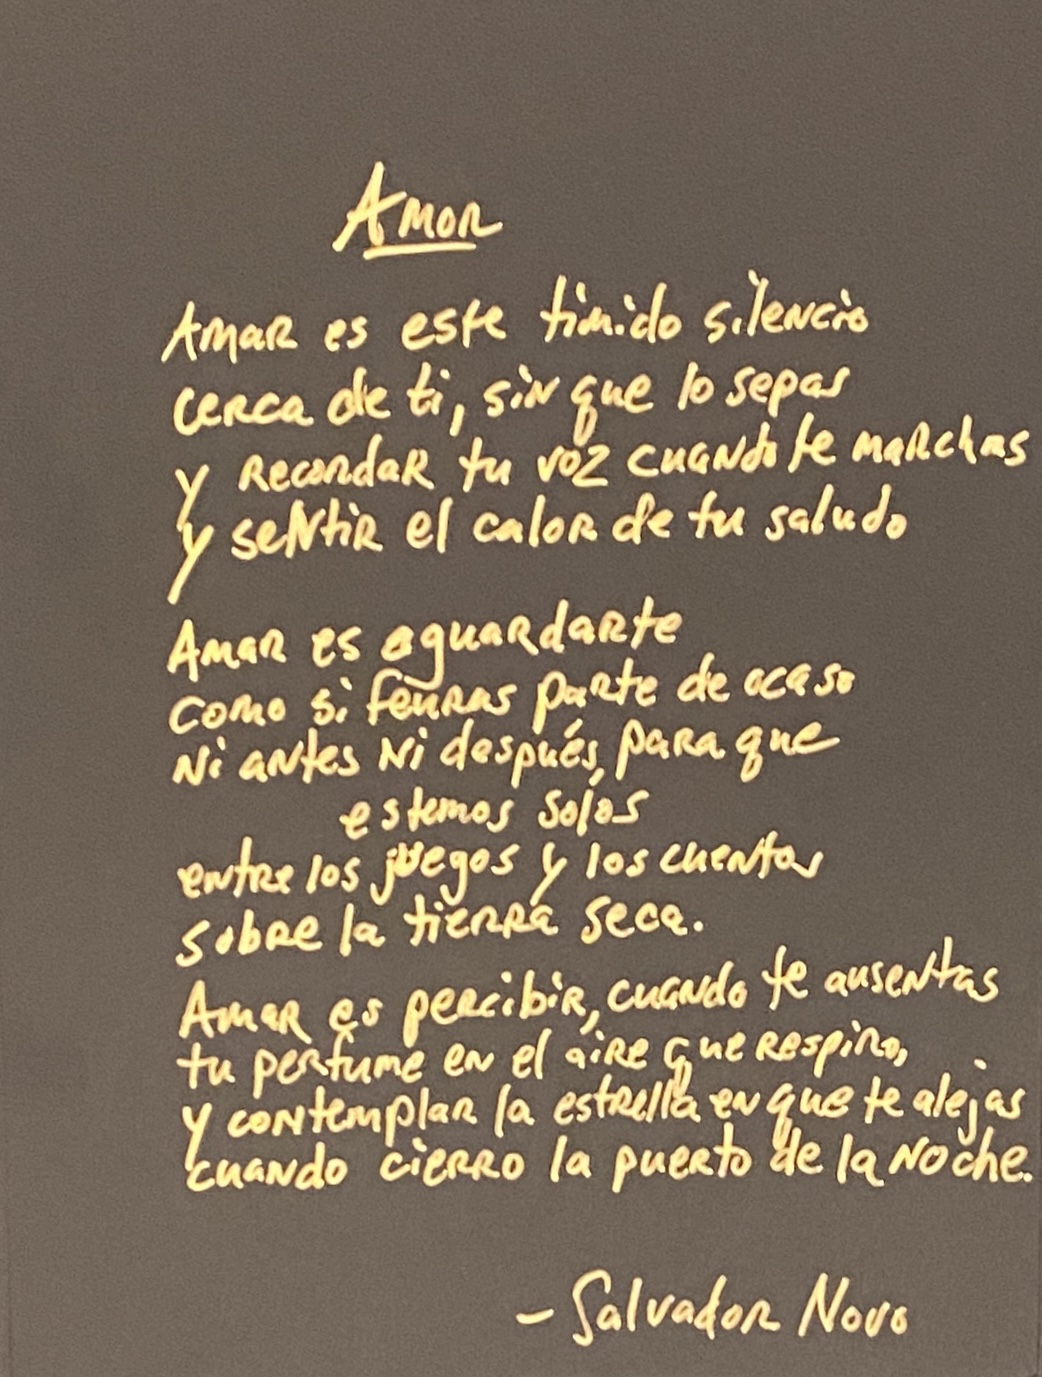 Amor
Amar es este timido silencio
cerca de ti, sin que lo sepas
y recordar tu voz cuando te marchas
y sentir el calor de tu saludo
Amar es aguardarte
como si feuras parte de ocaso
Ni antes Ni después, para que
estemos solos
entre los juegos y los cuentos
sobre la tierra seca.
Amar es percibir, cuando te ausentas
tu perfume en el aire que respiro,
y contemplar la estrella en que te alejas
cuando cierro la puerto de la noche.
- Salvador Novo